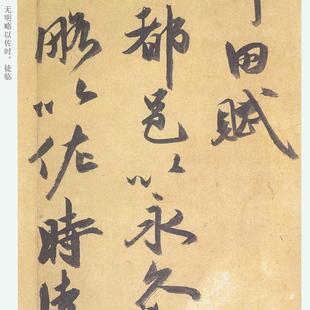 田賦
都邑以永久
略以佐時
无明略以佐时。徒临